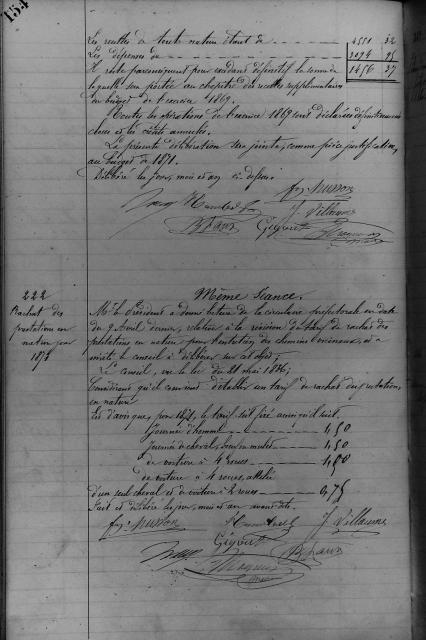 154
Les recettes de toute nature étant de 4551 32
Les dépenses de 3094 95
Il reste par conséquent pour excédant définitif la somme de 1456 37
laquelle sera portée au chapitre des recettes supplémentaires
du budget de l'exercice 1869.
Toutes les opérations de l'exercice 1869 sont déclarées définitivement
closes et les crédits annulés.
La présente délibération sera jointe, comme pièce justificative,
au budget de 1871.
Délibéré les jour, mois et an ci-dessus.
Husson
J. Villaume
Gigout
222
Même Séance.
Rachat des
prestations en
nature pour
1871
Mr le Président a donné lecture de la circulaire préfectorale en date
du 9 Avril dernier, relative à la révision du tarif de rachat des
prestations en nature pour l'entretien des chemins vicinaux, et a
invité le conseil à délibérer sur cet objet;
Le conseil, vu la loi du 21 mai 1836;
Considérant qu'il convient d'établir un tarif de rachat des prestations,
en nature
Est d'avis que, pour 1871, le tarif soit fixé ainsi qu'il suit.
Journée d'homme 1,50
Journée de cheval, boeuf ou mulet 1,50
de voiture à 4 roues
de voiture à 4 roues, attelée
d'un seul cheval et de voiture à 2 roues 0,75
Fait et délibéré les jour, mois et an avant dits.
Husson
J. Villaume
Gigout